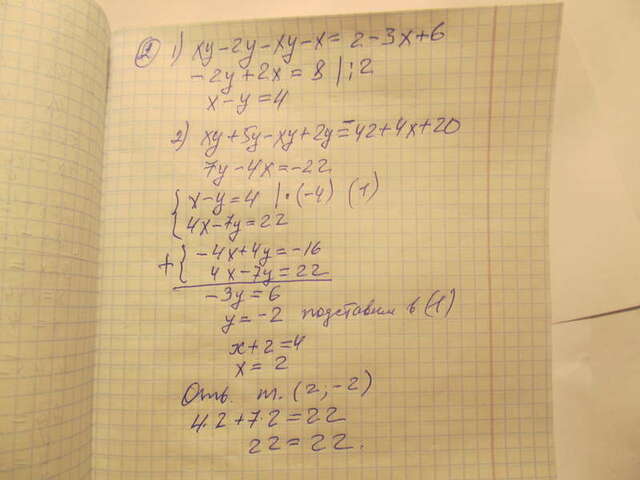 2) 1) xy-2y-xy-x=2-3x+6
-2y+2x=8 |:2
x-y=4
2) xy+5y-xy+2y=-42+4x+20
7y-4x=-22
{ x-y=4 |·(-4) (1)
4x-7y=22
+{ -4x+4y=-16
4x-7y=22
-3y=6
y=-2 подставим в (1)
x+2=4
x=2
Отв. т. (2;-2)
4·2+7·2=22
22=22.